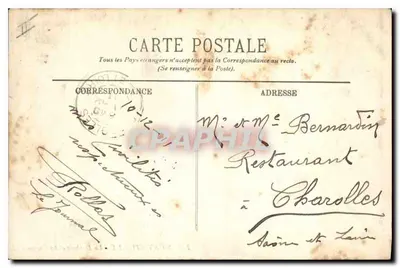 CARTE POSTALE
Tous les Pays étrangers n'acceptent pas la Correspondance au recto.
(Se renseigner à la Poste).
CORRESPONDANCE
ADRESSE
10-12
mes Civilités
respectueuses
Rollas
Mr et Me Bernardin
Restaurant
à Charolles
Saône et Loire
CPARAMA